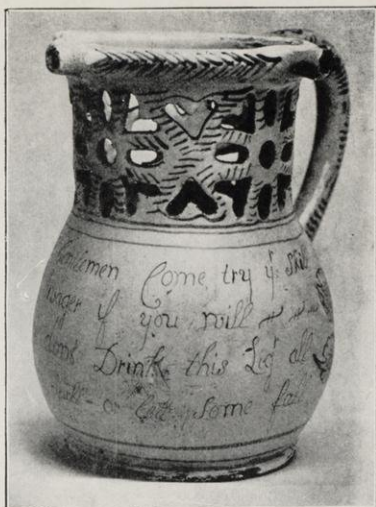 Gentlemen Come, try yr Skill
wager if you will
dont Drink this Liqr all
or Let some fall